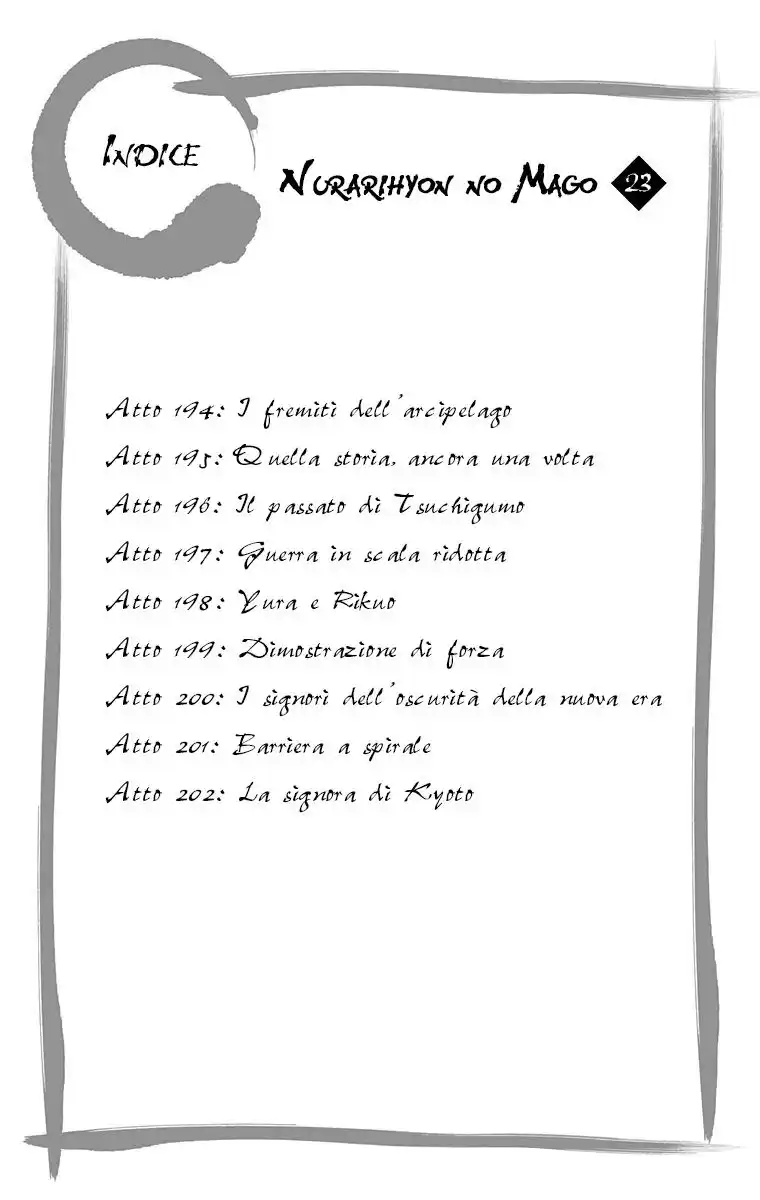 Indice
Nurarihyon no Mago 23
Atto 194: I fremiti dell'arcipelago
Atto 195: Quella storia, ancora una volta
Atto 196: Il passato di Tsuchigumo
Atto 197: Guerra in scala ridotta
Atto 198: Yura e Rikuo
Atto 199: Dimostrazione di forza
Atto 200: I signori dell'oscurità della nuova era
Atto 201: Barriera a spirale
Atto 202: La signora di Kyoto